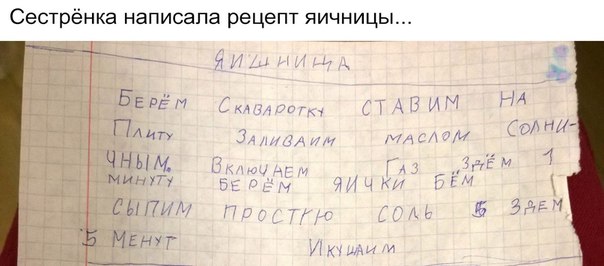 Сестрёнка написала рецепт яичницы...
ЯИШНИЦА
БЕРЁМ СКАВАРОТКУ СТАВИМ НА
ПЛИТУ ЗАЛИВАИМ МАСЛОМ СОЛНИ-
ЧНЫМ. ВКЛЮЧАЕМ ГАЗ ЗДЁМ 1
МИНУТУ БЕРЁМ ЯИЧКИ БЁМ
СЫПИМ ПРОСТУЮ СОЛЬ ЗДЕМ
5 МЕНУТ ИКУШАИМ